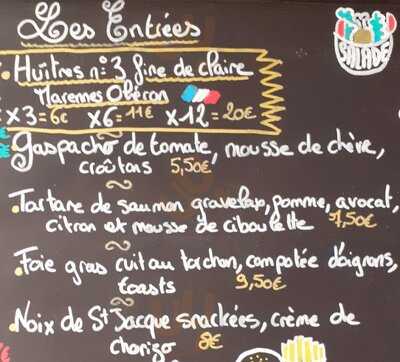 Les Entrées
SALADE
• Huîtres n°3 fine de claire
Marennes Oléron
x3=6€ x6=11€ x12=20€
• Gaspacho de tomate, mousse de chèvre,
croûtons 5,50€
• Tartare de saumon gravelax, pomme, avocat,
citron et mousse de ciboulette 7,50€
• Foie gras cuit au torchon, compotée d'oignons,
toasts 9,50€
• Noix de St Jacque snackées, crème de
chorizo 8€